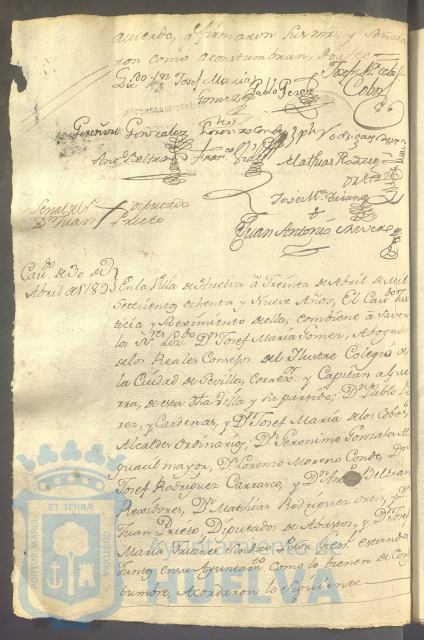 acuerdo, y firmaron sus mrs. y señala
ron como acostumbran, doy fee
Lizdo. Dn. Josef Maria
Gomez
Pablo Perez
Josef Ma. de los
Cobos
Geronimo Gonzalez
Lorenzo Conde
Jph Rodriguez Carrasco
Anto. Beltran
Franco.
Mathias Rodrig
Ortiz
Señal del Sr. Diputado
Dn. Juan Prieto
Josef Ma. Triana
Juan Antonio
Cavdo. de 30 de
Abril de 1789
En la Villa de Huelva a Treinta de Abril de Mil
Setecientos ochenta y Nueve Años, El Cavdo. Jus
ticia y Reximiento de ella, combiene a saver
los Sres. Lizdo. Dn. Josef Maria Gomez, Abogado
de los Reales Consejos del Ilustre Colegio de
la Ciudad de Sevilla, Correxor. y Capitan a Gue
rra, de esta dha Villa y su partido; Dn. Pablo Pe
rez, y Cardenas, y Dn. Josef Maria de los Cobos,
Alcaldes Ordinarios; Dn. Geronimo Gonzales Al
guacil mayor, Dn. Lorenzo Moreno Conde, Dn.
Josef Rodriguez Carrasco, y Dn. Anto. Beltran
Rexidores, Dn. Mathias Rodriguez Ortiz, y Dn.
Juan Prieto Diputados de Abastos, y Dn. Josef
Maria Triana Sindico Por. Genl. estando
Juntos en su Ayuntamto. como lo tienen de Cos
tumbre, Acordaron lo siguiente
PORTUS MARIS ET TERRÆ CUSTODIA
Ayuntamiento de
HUELVA